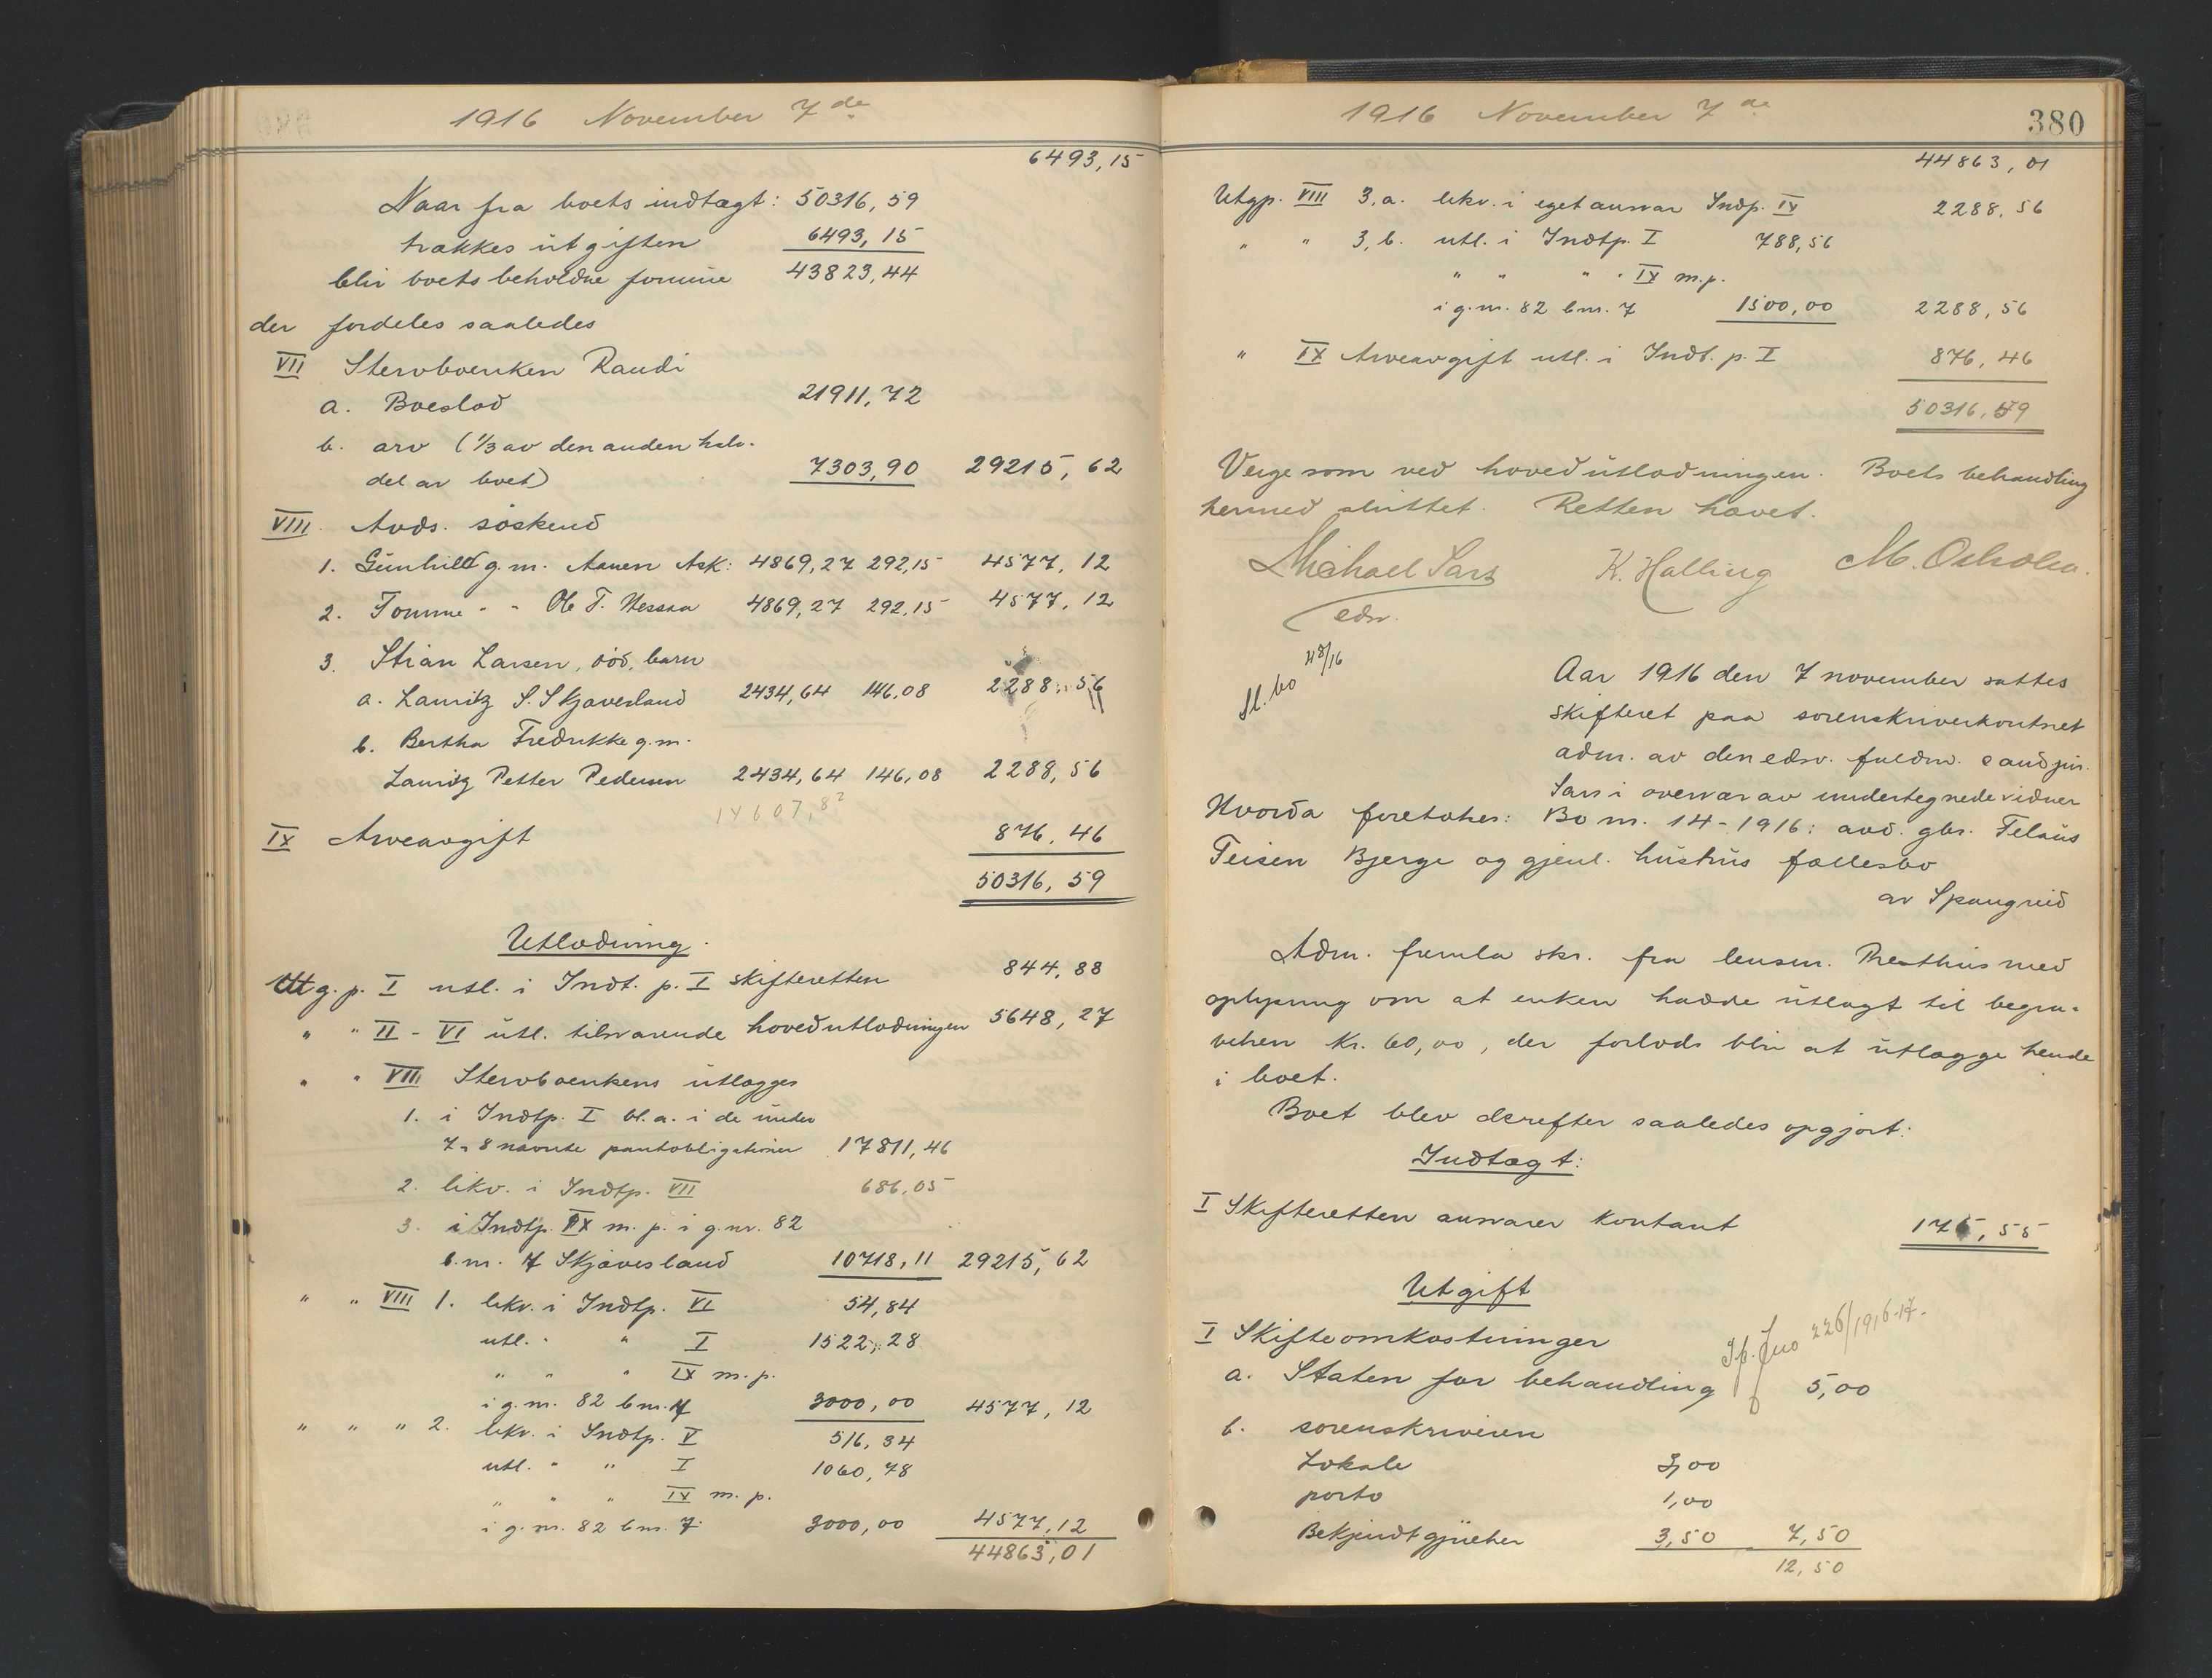 1916 November 7de
6493,15
Naar fra boets indtægt: 50316,59
trækkes utgiften 6493,15
blir boets beholdne formue 43823,44
der fordeles saaledes
VII Stervboenken Randi
a. Boeslod 21911,72
b. arv (1/3 av den anden halv-
del av boet) 7303,90 29215,62
VIII. Avds. søskend
1. Gunhild g.m. Aanen Ask: 4869,27 292,15 4577,12
2. Tomine " " Ole T. 4869,27 292,15 4577,12
3. Stian Larsen, død, barn
a. Lauritz S. Skjævesland 2434,64 146,08 2288,56
b. Bertha Fredrikke g.m.
Lauritz Petter Pedersen 2434,64 146,08 2288,56
14607,82
IX Arveavgift 876,46
50316,59
Utlodning.
Utg.p. I utl. i Indt. p. I skifteretten 844,88
" " II - VI utl. tilsvarende hovedutlodningen 5648,27
" " VII Stervboenkens utlægges
1. i Indtp. I bl.a. i de under
7 - 8 nævnte pantobligationer 17811,46
2. likv. i Indtp. VII 686,05
3. i Indtp. IX m.p. i g.nr. 82
b.nr. 7 Skjævesland 10718,11 29215,62
" " VIII 1. likv. i Indtp. VI 54,84
utl. " " I 1522,28
" " " IX m.p.
i g.nr. 82 bnr. 7 3000,00 4577,12
" " " 2. likv. i Indtp. V 516,34
utl. " " I 1060,78
" " " IX m.p.
i g.nr. 82 bnr. 7 3000,00 4577,12
44863,01
1916 November 7de
380
44863,01
Utgp. VIII 3,a. likv. i eget ansvar Indp. IV 2288,56
" " 3,b. utl. i Indtp. I 788,56
" " " " IX m.p.
i g.nr. 82 bnr. 7 1500,00 2288,56
" IX Arveavgift utl. i Indt. p. I 876,46
50316,59
Verge som ved hovedutlodningen. Boets behandling
hermed sluttet. Retten hævet.
Michael Sars K. Halling M. Osholm.
edsv.
Sl. bo
Aar 1916 den 7 november sattes
skifteret paa sorenskriverkontoret
adm. av den edsv. fuldm. cand jur.
Sars i overvær av undertegnede vidner
Hvorda foretokes: Bo nr. 14-1916: avd. gbr. Felaus
Teisen Bjerge og gjenl. hustrus fællesbo
av Spangreid
Adm. fremla skr. fra lensm. Presthus med
oplysning om at enken hadde utlagt til begra-
velsen kr. 60,00, der forlods blir at utlægge hende
i boet.
Boet blev derefter saaledes opgjort:
Indtægt:
I Skifteretten ansvarer kontant 175,55
Utgift
I Skifteomkostninger
Jf. Jno 226/1916-17-
a. Staten for behandling 5,00
b. sorenskriveren
Lokale 3,00
porto 1,00
Bekjendtgjørelser 3,50 7,50
12,50